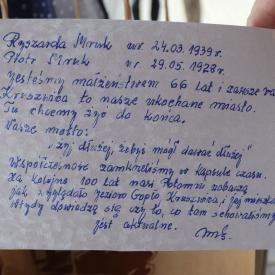 Ryszarda Mruk ur. 24.03.1939r.
Piotr Mruk ur. 29.05.1928r.
Jesteśmy małżeństwem 66 lat i zawsze
Kruszwica to nasze ukochane miasto.
Tu chcemy żyć do końca.
Nasze motto:
"żyj dłużej żebyś mógł dawać dłużej"
Współczesność zamknęliśmy w kapsule czasu.
Za kolejne 100 lat nasi Potomni zobaczą
jak wyglądało jezioro Gopło, Kruszwica i jej
wtedy dowiedzą się czy to, co tam schowaliśmy
jest aktualne.